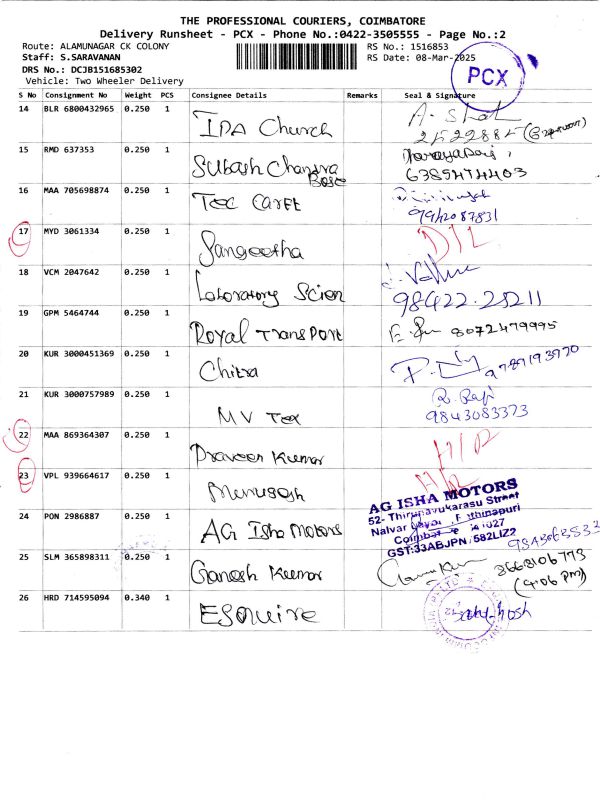 THE PROFESSIONAL COURIERS, COIMBATORE
Delivery Runsheet - PCX - Phone No.:0422-3505555 - Page No.:2
Route: ALAMUNAGAR CK COLONY RS No.: 1516853
Staff: S.SARAVANAN RS Date: 08-Mar-2025
DRS No.: DCJB151685302
Vehicle: Two Wheeler Delivery
PCX
S No Consignment No Weight PCS Consignee Details Remarks Seal & Signature
14 BLR 6800432965 0.250 1 IPA Church
15 RMD 637353 0.250 1 Subash Chandra Bose 6385474403
16 MAA 705698874 0.250 1 Tec Caret 9942087831
17 MYD 3061334 0.250 1 Sangeetha D/L
18 VCM 2047642 0.250 1 Laboratory Scien 98422.25211
19 GPM 5464744 0.250 1 Royal Transport 8072479995
20 KUR 3000451369 0.250 1 Chitra 9789193970
21 KUR 3000757989 0.250 1 MV Tex R. Raji 9843083373
22 MAA 869364307 0.250 1 Praveen Kumar
23 VPL 939664617 0.250 1
24 PON 2986887 0.250 1 AG Isha Motors
AG ISHA MOTORS
52- Thirunavukarasu Street
GST:33ABJPN
25 SLM 365898311 0.250 1 Ganesh Kumar 8668106773
(9:06 pm)
26 HRD 714595094 0.340 1 Esquire